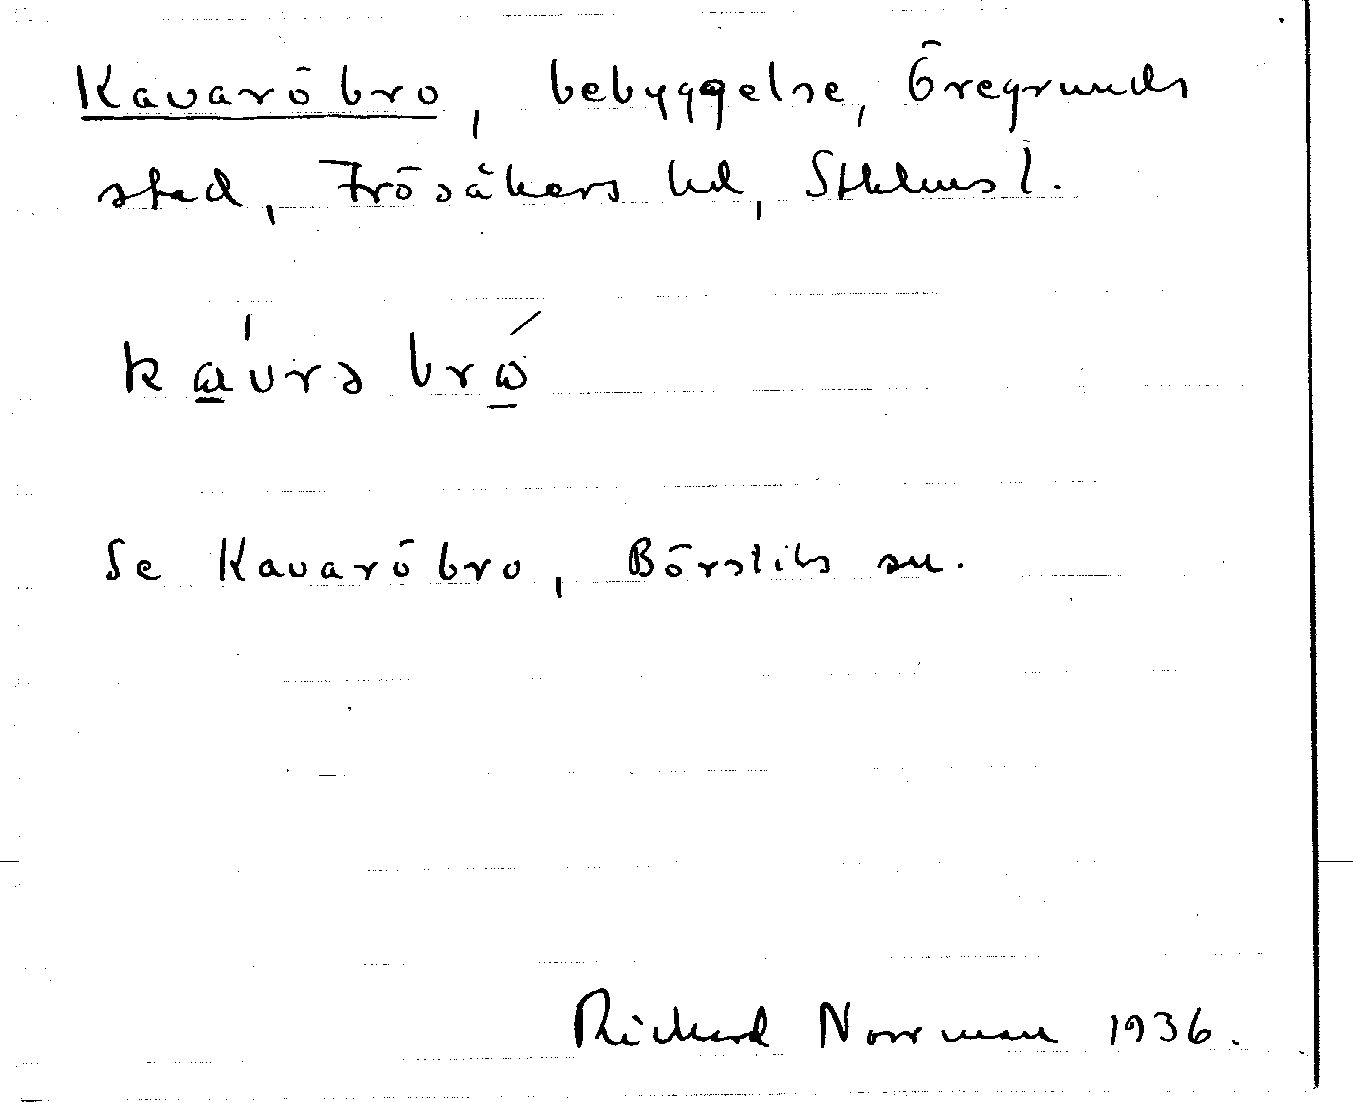 Kavaröbro, bebyggelse, Öregrunds
stad, Frösåkers hd, Sthlms l.
kavrə brω
Se Kavaröbro, Börstils sn.
Richard Norrman 1936.